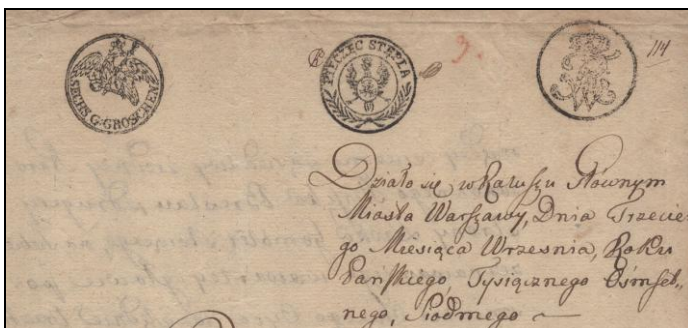 SECHS G: GROSCHEN
PIECZEC STEPLA
3.
114
Działo się w Ratuszu Głównym
Miasta Warszawy, Dnia Trzecie
go Miesiąca Wrzesnia, Roku
Pańskiego, Tysiącznego Ośmset,,
nego, Siodmego —